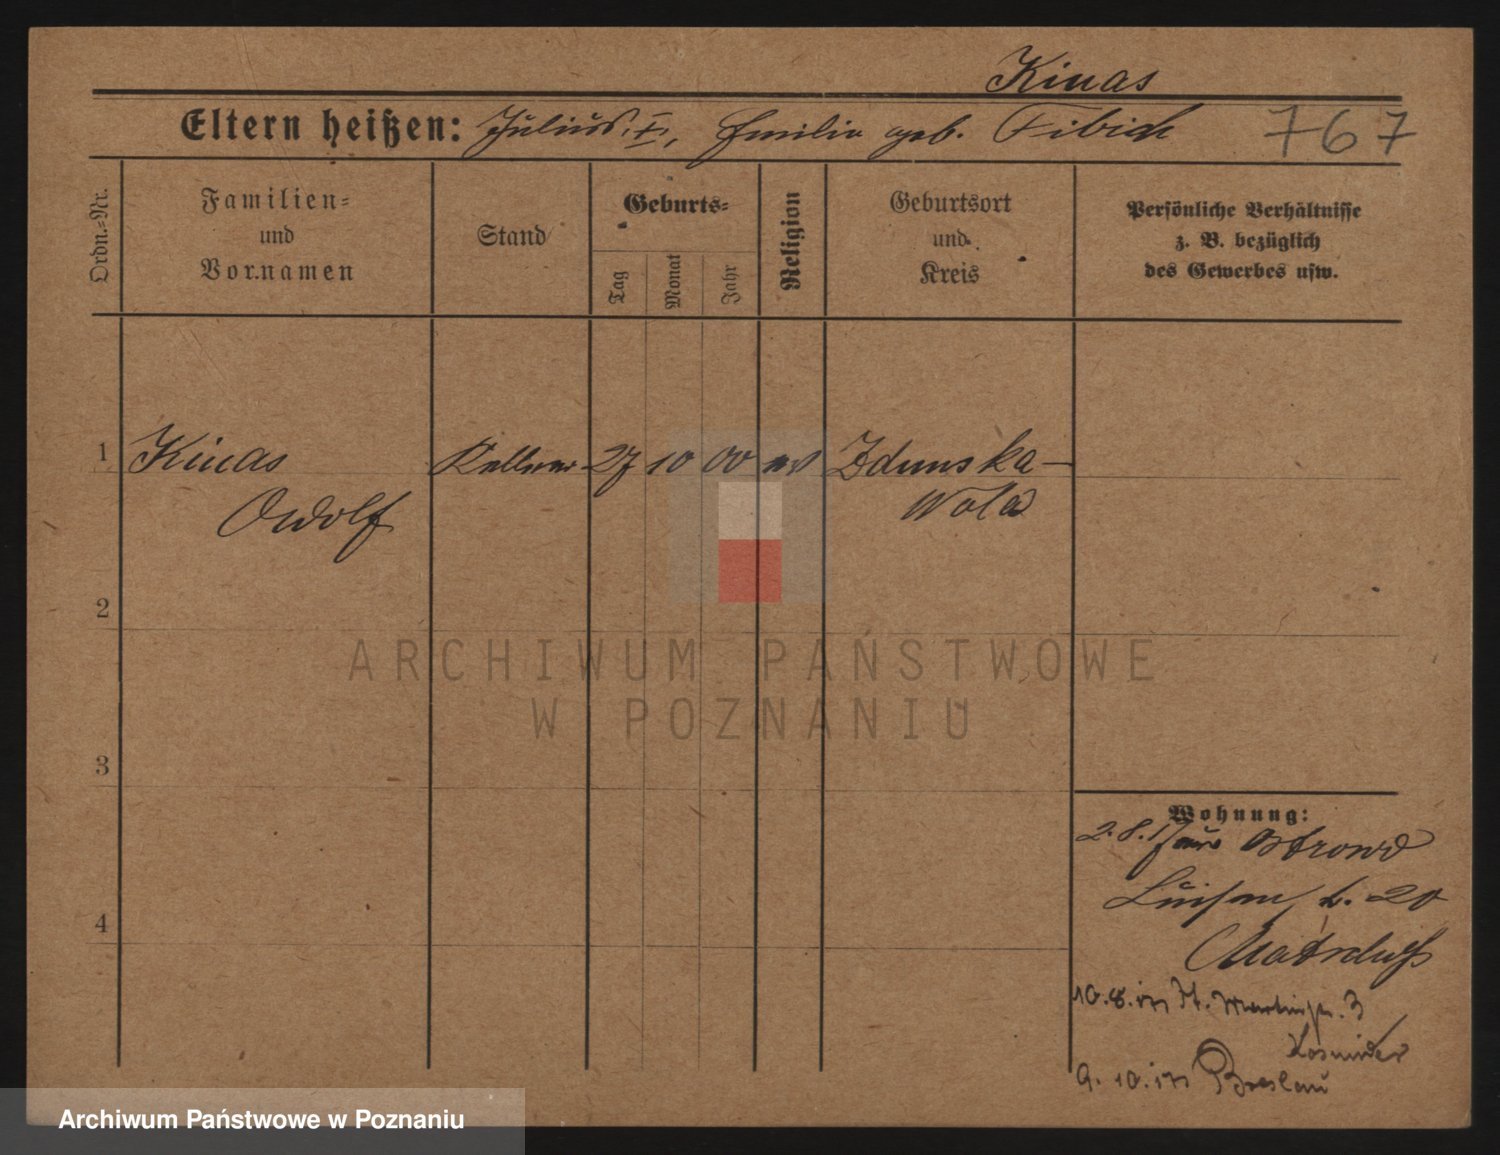 Kinas
Eltern heißen: Julius †, Emilie geb. Fibich 767
Ordn.-Nr.
Familien-
und
Vornamen
Stand
Geburts-
Tag
Monat
Jahr
Religion
Geburtsort
und
Kreis
Persönliche Verhältnisse
z. B. bezüglich
des Gewerbes usw.
1 Kinas Kellner 27 10 00 ev Zdunska-
Adolf Wola
2
ARCHIWUM PAŃSTWOWE
W POZNANIU
3
Wohnung:
2.8.17 aus Ostrowo
Luisenstr. 20
10.8.17 St. Martinstr. 3
9.10.17 Breslau
4
Archiwum Państwowe w Poznaniu